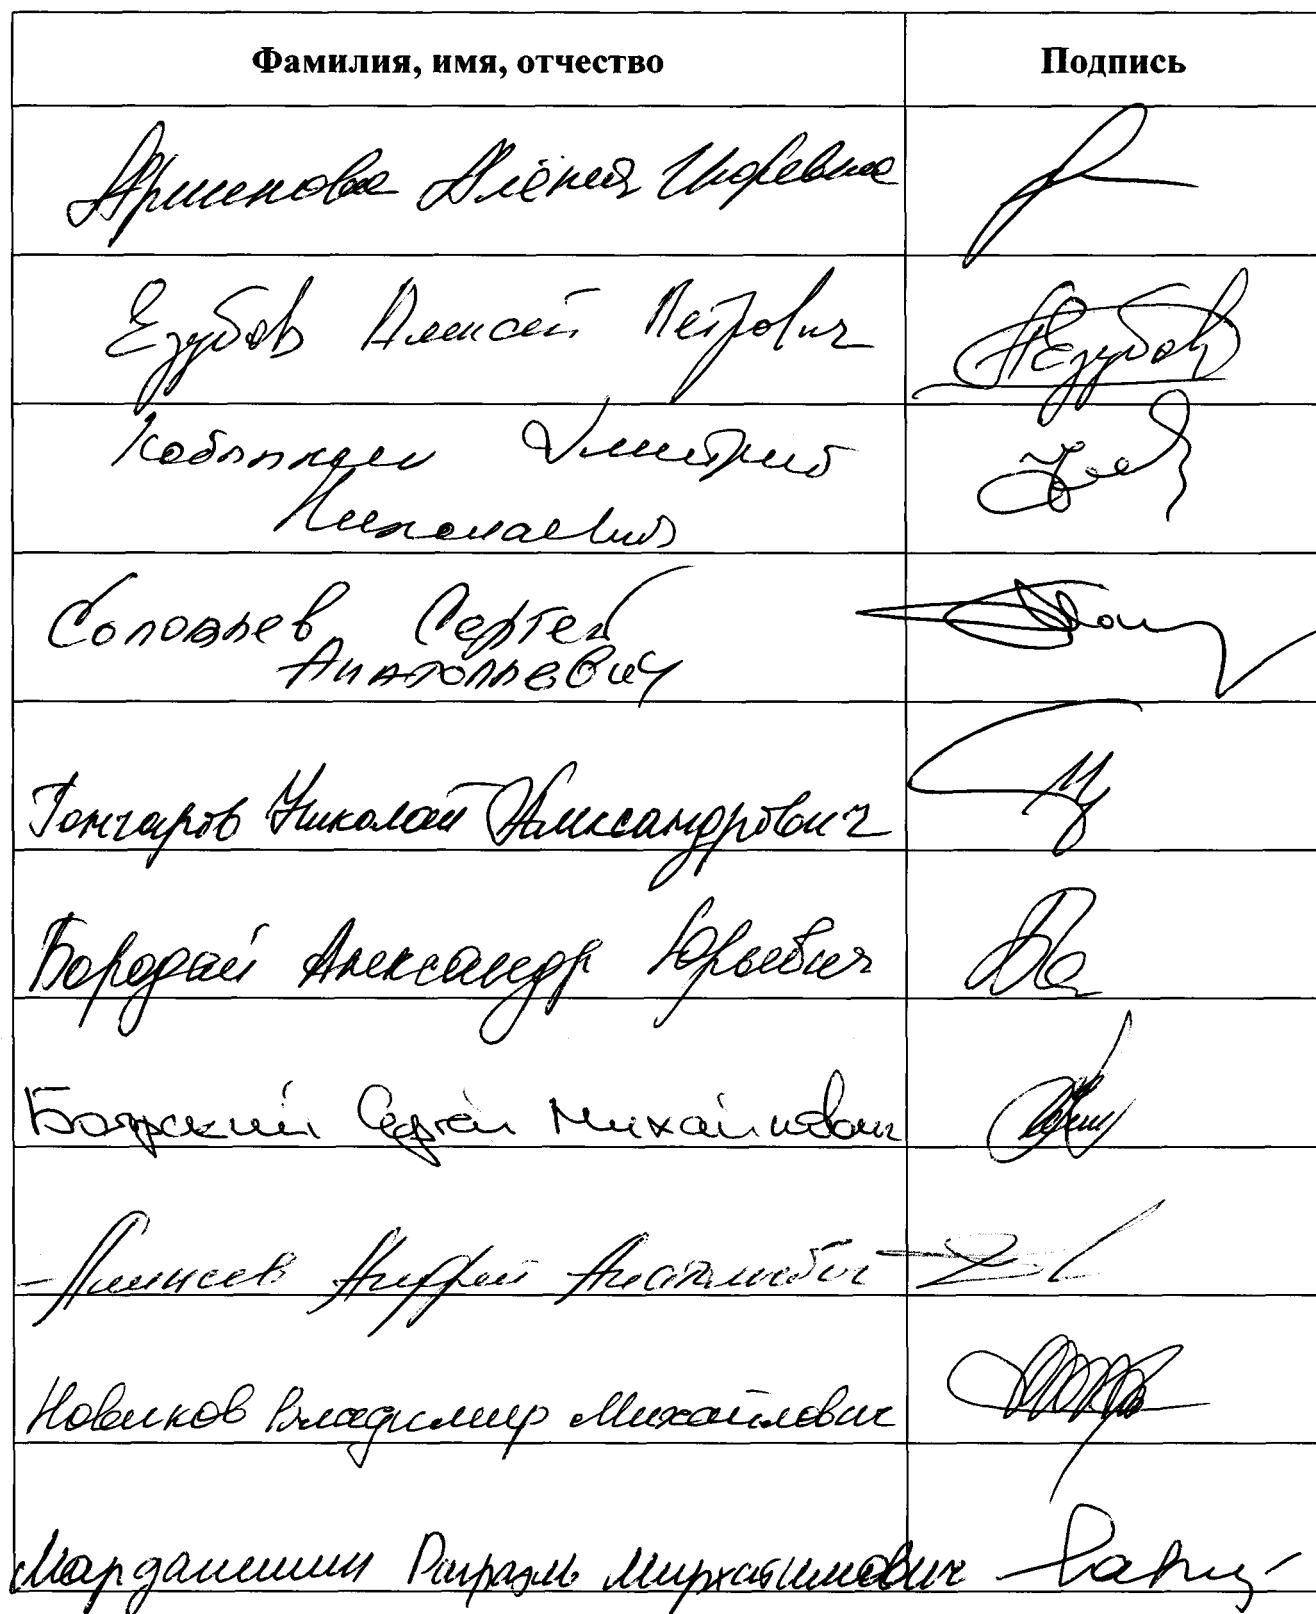 Фамилия, имя, отчество Подпись
Аршинова Алёна Игоревна
Езубов Алексей Петрович
Кобылкин Дмитрий
Николаевич
Соловьев Сергей
Анатольевич
Гончаров Николай Александрович
Бородай Александр Юрьевич
Боярский Сергей Михайлович
Андрей Анатольевич
Новиков Владимир Михайлович
Марданшин Рафаэль Мирхатимович